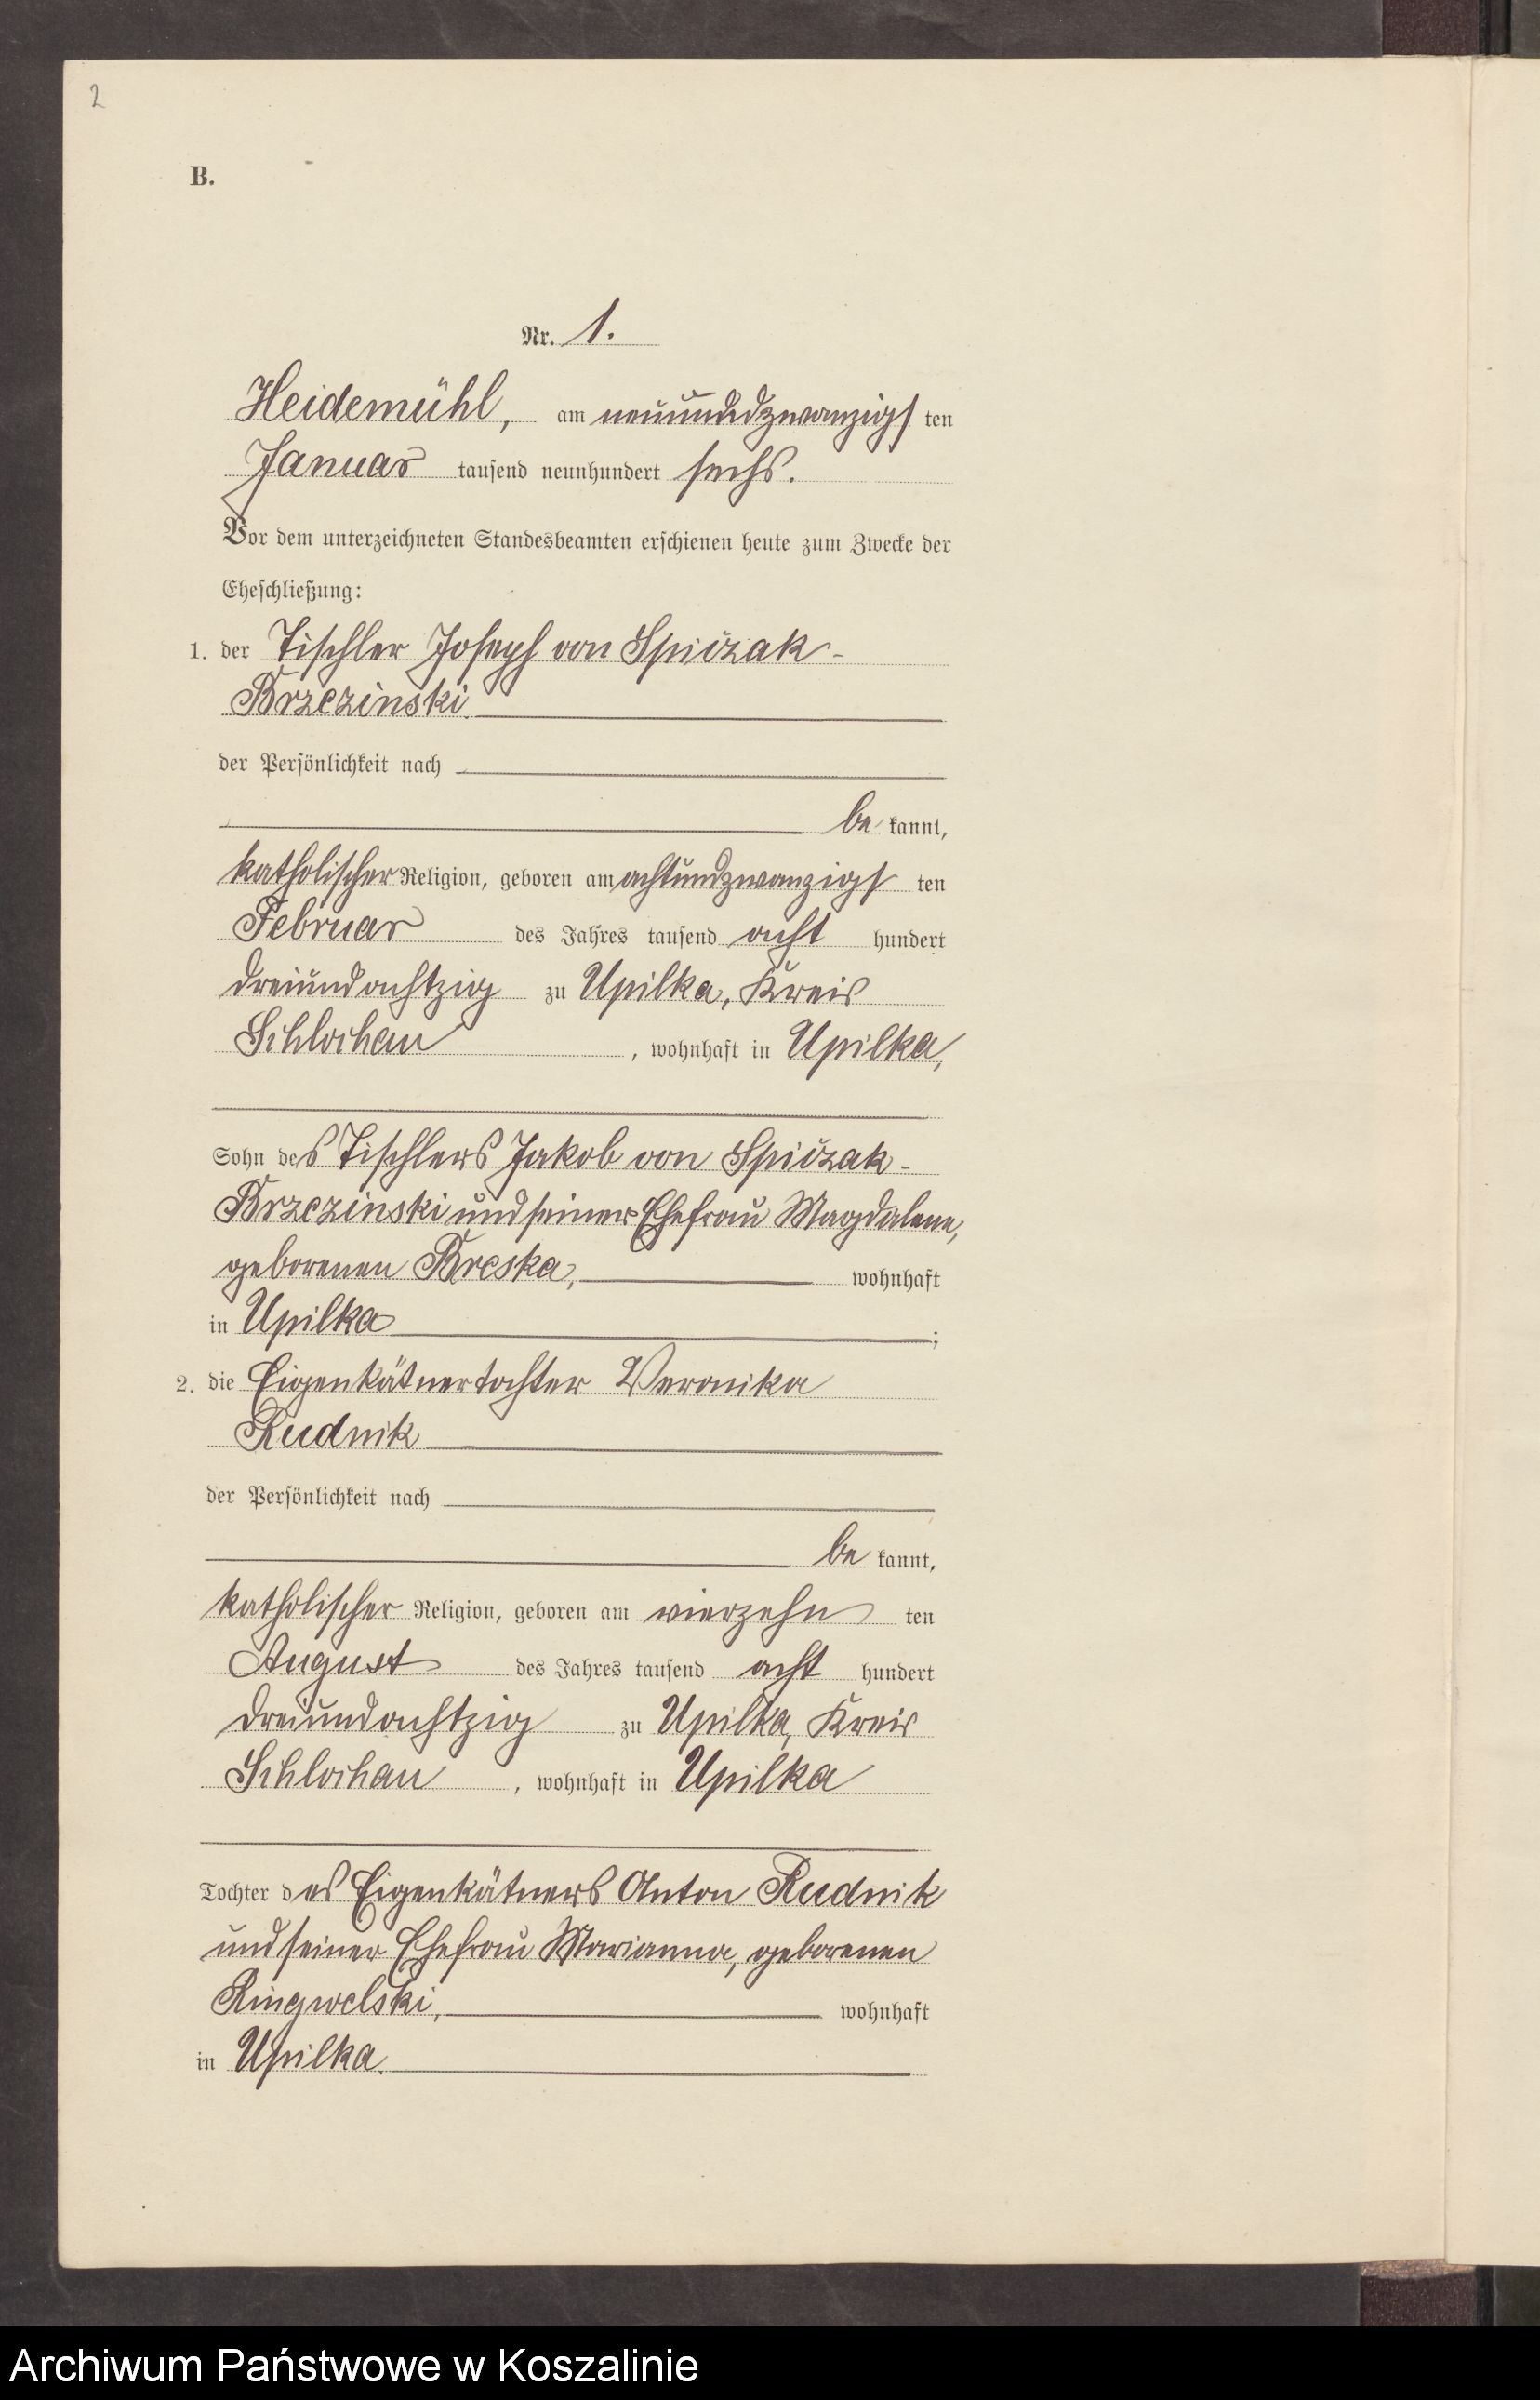 2
B.
Nr. 1.
Heidemühl, am neunundzwanzigsten
Januar tausend neunhundert sechs.
Vor dem unterzeichneten Standesbeamten erschienen heute zum Zwecke der
Eheschließung:
1. der Tischler Joseph von Spiczak-
Brzezinski
der Persönlichkeit nach
be kannt,
katholischer Religion, geboren am achtundzwanzigsten
Februar des Jahres tausend acht hundert
dreiundachtzig zu Upilka, Kreis
Schlochau, wohnhaft in Upilka,
Sohn des Tischlers Jakob von Spiczak-
Brzezinski und seiner Ehefrau Magdalene,
geborenen Breska, wohnhaft
in Upilka;
2. die Eigenkätnertochter Veronika
Rudnik
der Persönlichkeit nach
be kannt,
katholischer Religion, geboren am vierzehn ten
August des Jahres tausend acht hundert
dreiundachtzig zu Upilka, Kreis
Schlochau, wohnhaft in Upilka
Tochter des Eigenkätners Anton Rudnik
und seiner Ehefrau Marianna, geborenen
Ringwelski, wohnhaft
in Upilka.
Archiwum Państwowe w Koszalinie